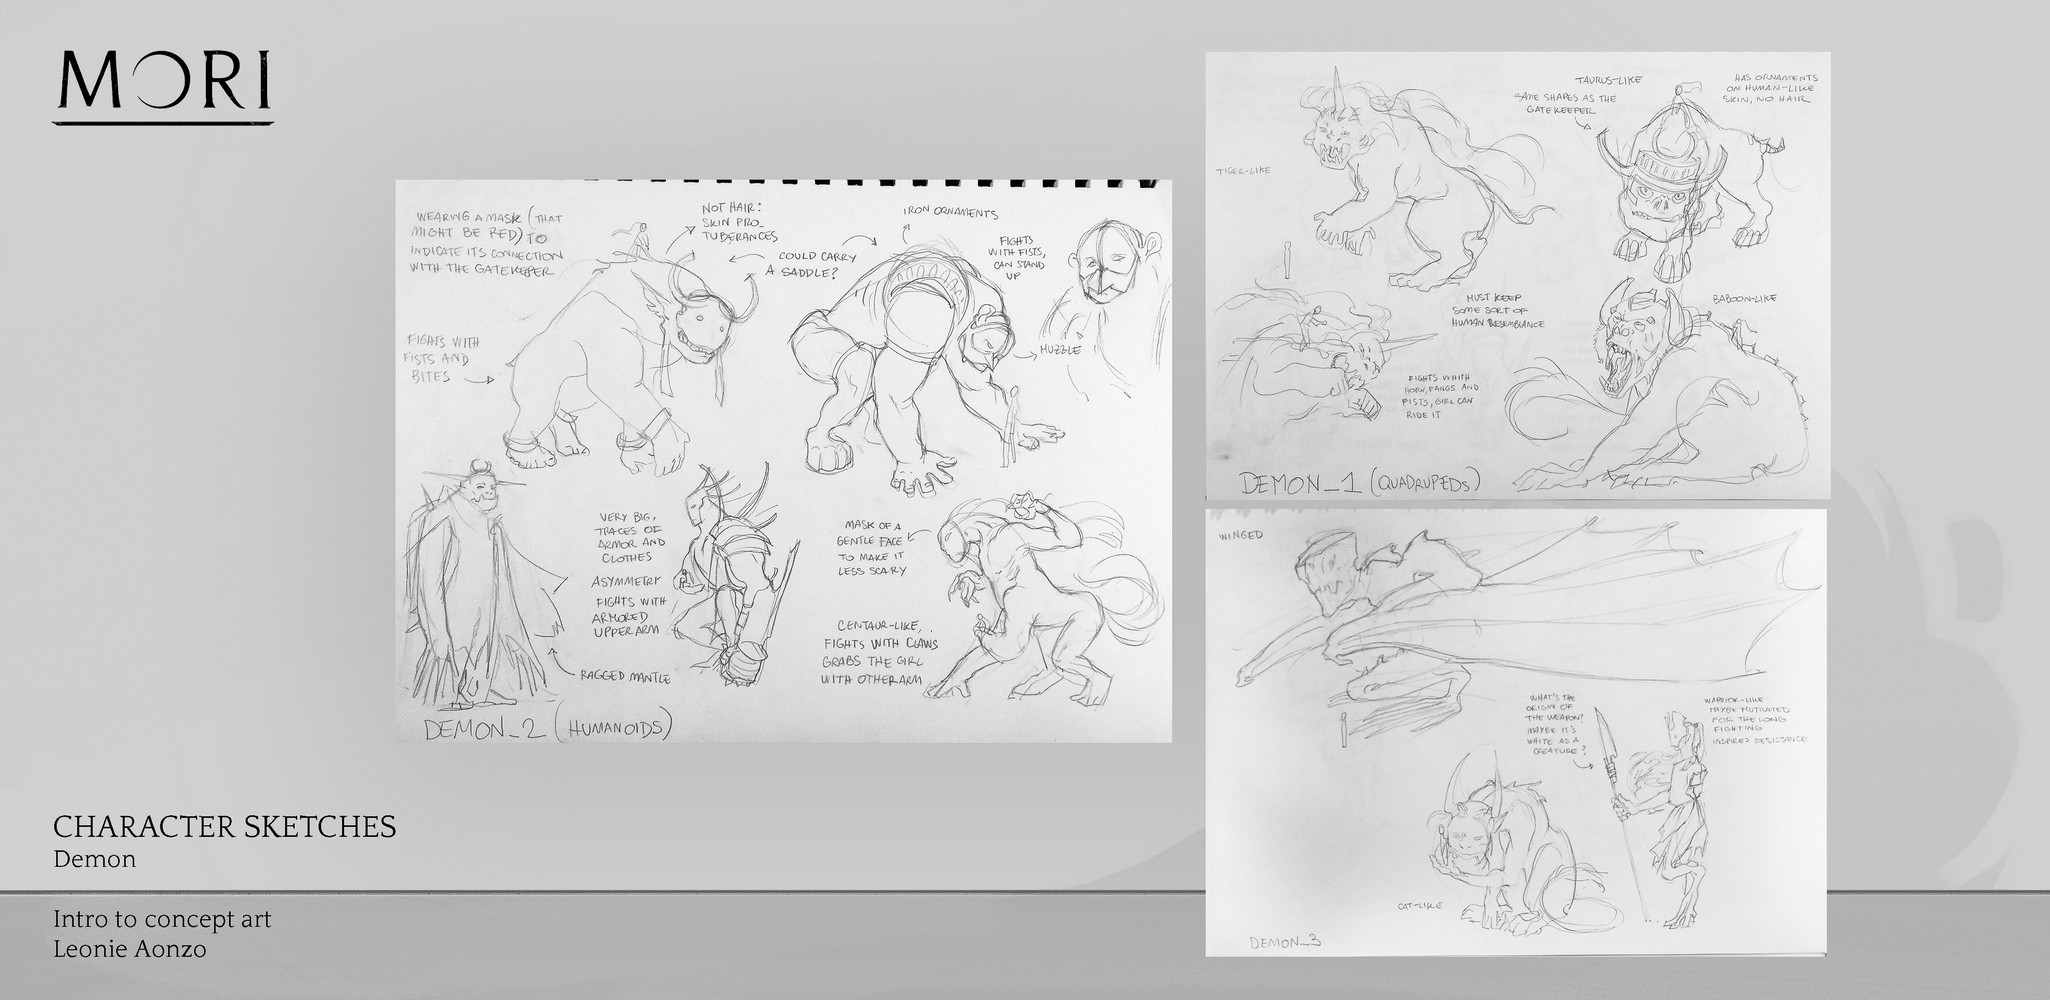 MORI
WEARING A MASK (THAT
MIGHT BE RED) TO
INDICATE ITS CONNECTION
WITH THE GATEKEEPER
NOT HAIR:
SKIN PRO-
TUBERANCES
COULD CARRY
A SADDLE?
IRON ORNAMENTS
FIGHTS
WITH FISTS,
CAN STAND
UP
MUZZLE
FIGHTS WITH
FISTS AND
BITES
VERY BIG,
TRACES OF
ARMOR AND
CLOTHES
ASYMMETRY
FIGHTS WITH
ARMORED
UPPER ARM
RAGGED MANTLE
MASK OF A
GENTLE FACE
TO MAKE IT
LESS SCARY
CENTAUR-LIKE,
FIGHTS WITH CLAWS
GRABS THE GIRL
WITH OTHER ARM
DEMON_2 (HUMANOIDS)
TIGER-LIKE
TAURUS-LIKE
SAME SHAPES AS THE
GATEKEEPER
HAS ORNAMENTS
ON HUMAN-LIKE
SKIN, NO HAIR
MUST KEEP
SOME SORT OF
HUMAN RESEMBLANCE
BABOON-LIKE
FIGHTS WHITH
HORN, FANGS AND
FISTS, GIRL CAN
RIDE IT
DEMON_1 (QUADRUPEDS)
WINGED
WHAT'S THE
ORIGIN OF
THE WEAPON?
MAYBE IT'S
WHITE AS A
CREATURE?
WARRIOR-LIKE
MAYBE MUTILATED
FOR THE LONG
FIGHTING
CAT-LIKE
DEMON_3
CHARACTER SKETCHES
Demon
Intro to concept art
Leonie Aonzo